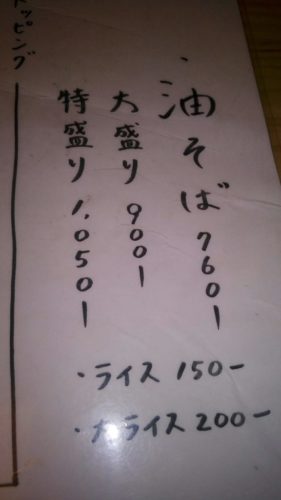 油そば 760ー
大盛り 900ー
特盛り 1,050ー
・ライス 150ー
・大ライス 200ー
トッピング